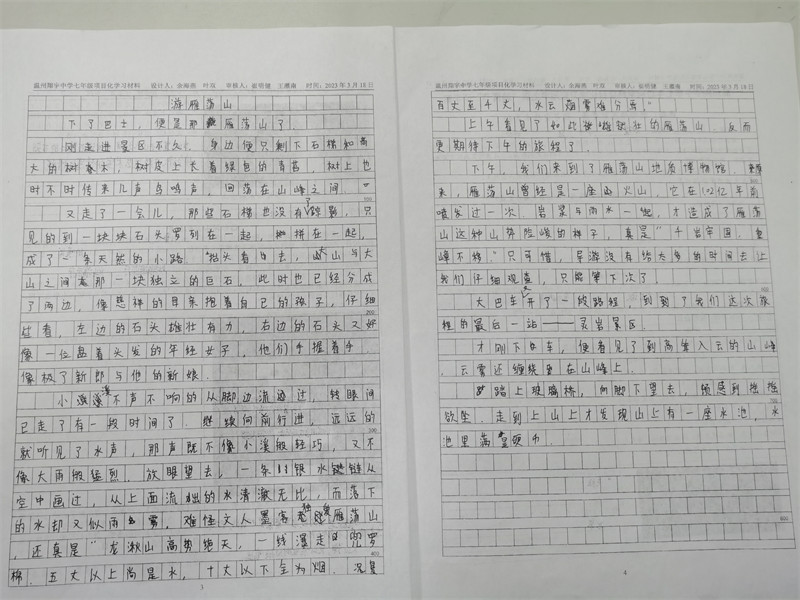 温州翔宇中学七年级项目化学习材料 设计人：余海燕 叶双 审核人：崔绍健 王潇南 时间：2023年3月18日
游雁荡山
下了巴士，便是那雁荡山了。
刚走进景区不久，身边便只剩下石模和高
大的树木，树皮上长着绿色的青苔，树上也
时不时传来几声鸟鸣声，回荡在山峰之间。
又走了一会儿，那些石模也没有了踪影，只
见的到一块块石头罗列在一起，拼在一起，
成了一条天然的小路。抬头看去，大山与大
山之间卷那一块独立的巨石，此时也已经分成
了两边，像慈祥的母亲抱着自己的孩子，仔细
过看，左边的石头雄壮有力，右边的石头又好
像一位盘着头发的年轻女子，他们手握着手，
像极了新郎与他的新娘。
小溪不声不响的从脚边流过，转眼间
已走了有一段时间了。继续向前行进，远远的
就听见了水声，那声既不像小溪般轻巧，又不
像大雨般猛烈。放眼望去，一条银水链从
空中画过，从上面流出的水清澈无比，而落下
的水却又似雨雾。难怪文人墨客独爱雁荡山
，还真是“龙湫山高势绝天，一线瀑走兜罗
棉。五丈以上尚是水，十丈以下全为烟。况复
3
温州翔宇中学七年级项目化学习材料 设计人：余海燕 叶双 审核人：崔绍健 王潇南 时间：2023年3月18日
百丈至千丈，水云烟雾难分焉。”
上午看见了如此雄壮的雁荡山，反而
更期待下午的旅程了。
下午，我们来到了雁荡山地质博物馆，原
来，雁荡山曾经是一座火山，它在1.02亿年前
喷发过一次，岩浆与雨水一起，才造成了雁荡
山这种山势险峻的样子，真是“千岩牢固，重
峰不移”只可惜，导游没有给太多的时间去让
我们仔细观查，只能笔下次了。
大巴车又开了一段路程，到到了我们这次旅
程的最后一站——灵岩景区。
才刚下车，便看见了到高耸入云的山峰
，云雾还缠绕在山峰上。
踏上玻璃桥，向脚下望去，顿感到摇摇
欲坠。走到上山上才发现山上有一座水池，水
池里满是硬币。
4